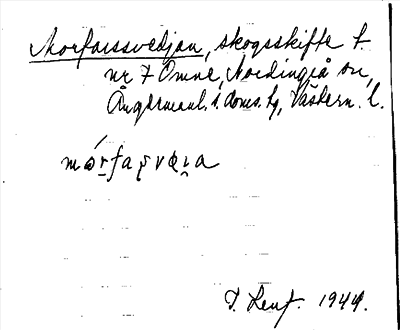 Morfarssvedjan, skogsskifte t.
nr 7 Omne, Nordingrå sn,
Ångermanl. s. doms. hg, Västern. l.
mórfaṣvęɩa
T. Lenf. 1944.